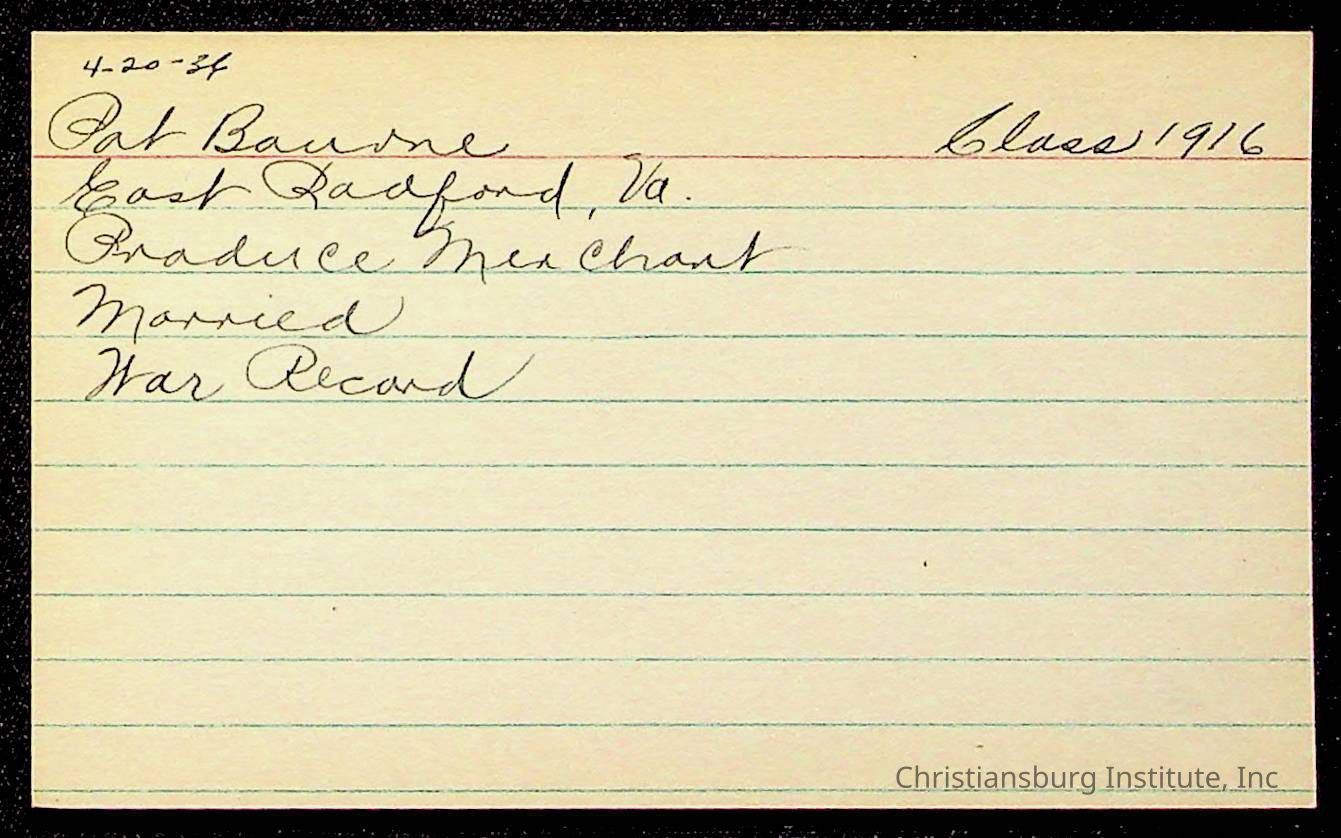 4-20-36
Pat Bourne Class 1916
East Radford, Va.
Produce Merchant
Married
War Record
Christiansburg Institute, Inc